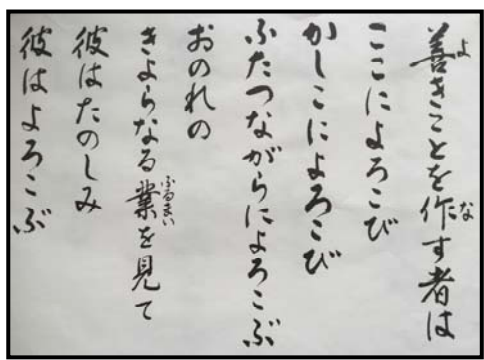 善きことを作す者は
ここによろこび
かしこによろこび
ふたつながらによろこぶ
おのれの
きよらなる業を見て
彼はたのしみ
彼はよろこぶ
よ
な
ふるまい